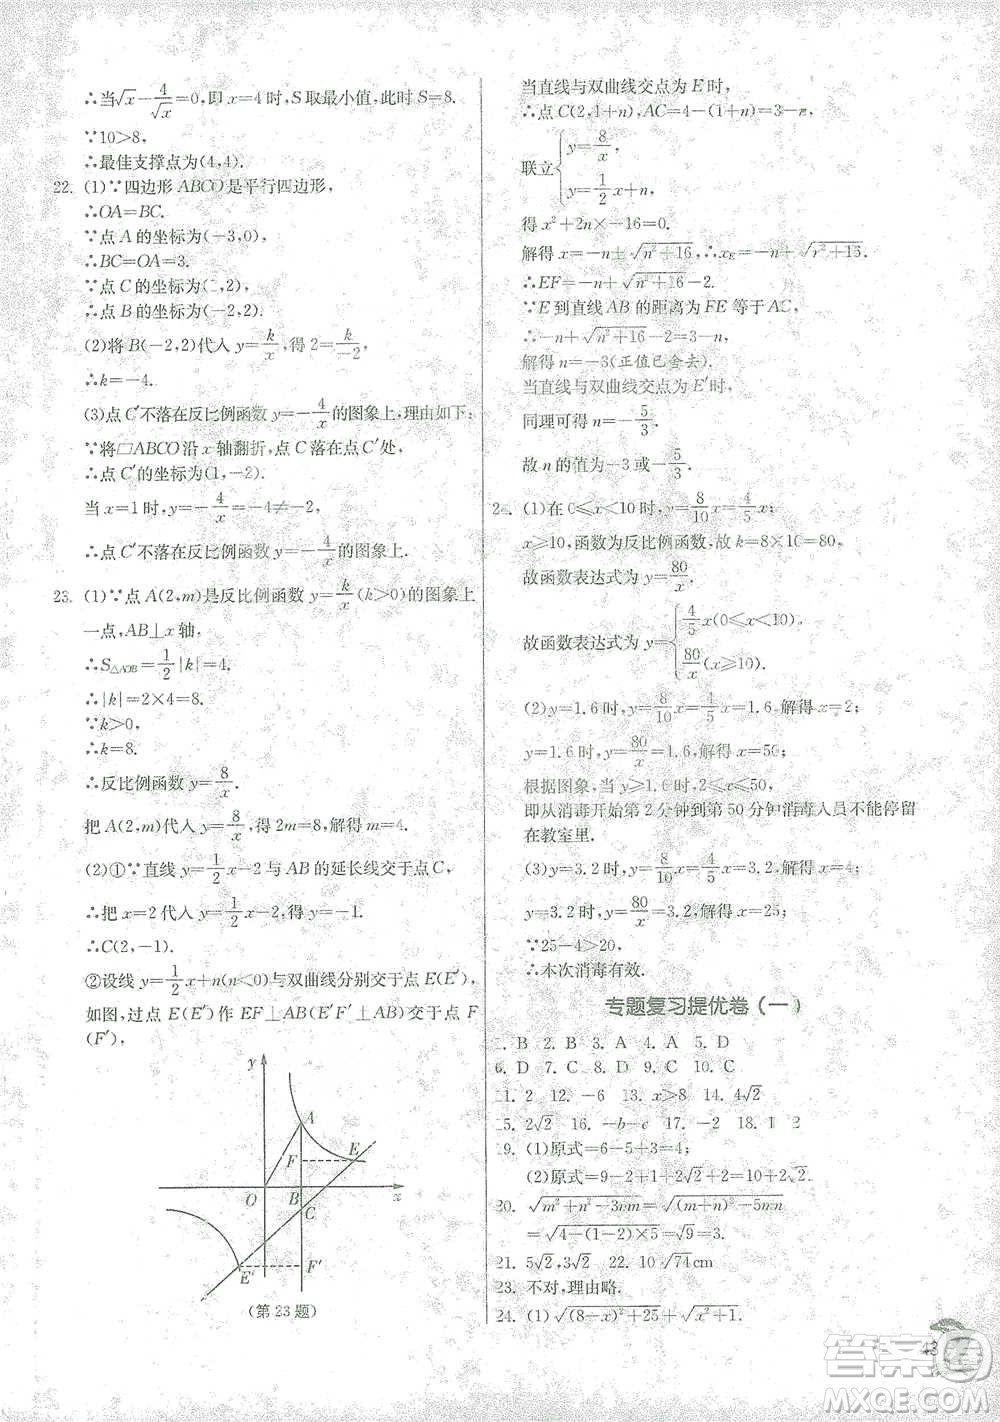 ∴当√x−4/√x=0,即x=4时,S取最小值,此时S=8.
∵10>8,
∴最佳支撑点为(4,4).
22. (1)∵四边形ABCO是平行四边形,
∴OA=BC.
∵点A的坐标为(−3,0),
∴BC=OA=3.
∵点C的坐标为(1,2),
∴点B的坐标为(−2,2).
(2)将B(−2,2)代入y=k/x,得2=k/−2,
∴k=−4.
(3)点C′不落在反比例函数y=−4/x的图象上,理由如下:
∵将□ABCO沿x轴翻折,点C落在点C′处,
∴点C′的坐标为(1,−2).
当x=1时,y=−4/x=−4≠−2,
∴点C′不落在反比例函数y=−4/x的图象上.
23. (1)∵点A(2,m)是反比例函数y=k/x(k>0)的图象上
一点,AB⊥x轴,
∴S△AOB=1/2|k|=4.
∴|k|=2×4=8.
∵k>0,
∴k=8.
∴反比例函数y=8/x.
把A(2,m)代入y=8/x,得2m=8,解得m=4.
(2)①∵直线y=1/2x−2与AB的延长线交于点C,
∴把x=2代入y=1/2x−2,得y=−1.
∴C(2,−1).
②设线y=1/2x+n(n<0)与双曲线分别交于点E(E′),
如图,过点E(E′)作EF⊥AB(E′F′⊥AB)交于点F
(F′),
y
A
F
E
O
B
C
x
E′
F′
(第23题)
当直线与双曲线交点为E时,
∴点C(2,1+n),AC=4−(1+n)=3−n,
联立{y=8/x,
y=1/2x+n,
得x²+2n×−16=0.
解得x=−n±√n²+16,∴xE=−n+√n²+16.
∴EF=−n+√n²+16−2.
∵E到直线AB的距离为FE等于AC,
∴−n+√n²+16−2=3−n,
解得n=−3(正值已舍去).
当直线与双曲线交点为E′时,
同理可得n=−5/3.
故n的值为−3或−5/3.
2 . (1)在0≤x<10时,y=8/10x=4/5x;
x≥10,函数为反比例函数,故k=8×10=80,
故函数表达式为y=80/x.
故函数表达式为y={4/5x(0≤x<10),
80/x(x≥10).
(2)y=1.6时,y=8/10x=4/5x=1.6,解得x=2;
y=1.6时,y=80/x=1.6,解得x=50;
根据图象,当y≥1.6时,2≤x≤50,
即从消毒开始第2分钟到第50分钟消毒人员不能停留
在教室里.
(3)y=3.2时,y=8/10x=4/5x=3.2,解得x=4;
y=3.2时,y=80/x=3.2,解得x=25;
∵25−4>20,
∴本次消毒有效.
专题复习提优卷(一)
1. B 2. B 3. A 4. A 5. D
6. D 7. C 8. B 9. D 10. C
11. 2 12. −6 13. x>8 14. 4√2
15. 2√2 16. −b−c 17. −2 18. 2
19. (1)原式=6−5+3=4.
(2)原式=9−2+1+2√2+2=10+2√2.
20. √m²+n²−3mn=√(m+n)²−5mn
=√4−(1−2)×5=√9=3.
21. 5√2,3√2 22. 10√74cm
23. 不对,理由略.
24. (1)√(8−x)²+25+√x²+1.
43
答案圈
MXQE.COM